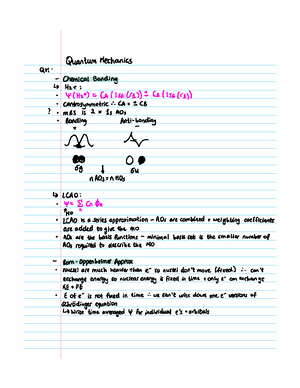 Quantum Mechanics
QM:
- Chemical Bonding
↳ H₂+:
• Ψ(H₂+) = CA (1sA(rA)) ± CB (1sB(rB))
• Centrosymmetric ∴ CA = ± CB
? • MBS is 2 × 1s AOs
• Bonding Anti-bonding
σg σu
n AOs = n MOs
↳ LCAO:
• Ψ = Σ Cn Φn
n=0
• LCAO is a series approximation - AOs are combined + weighting coefficients
are added to give the MO
• AOs are the basis functions - minimal basis set is the smaller number of
AOs required to describe the MO
- Born-Oppenheimer Approx
• Nuclei are much heavier than e⁻ so nuclei don't move (fixed) ∴ can't
exchange energy so nuclear energy is fixed in time + only e⁻ can exchange
KE + PE
• E of e⁻ is not fixed in time ∴ we can't write down one e⁻ versions of
Schrödinger equation
↳ Write time averaged Ψ for individual e⁻s = orbitals